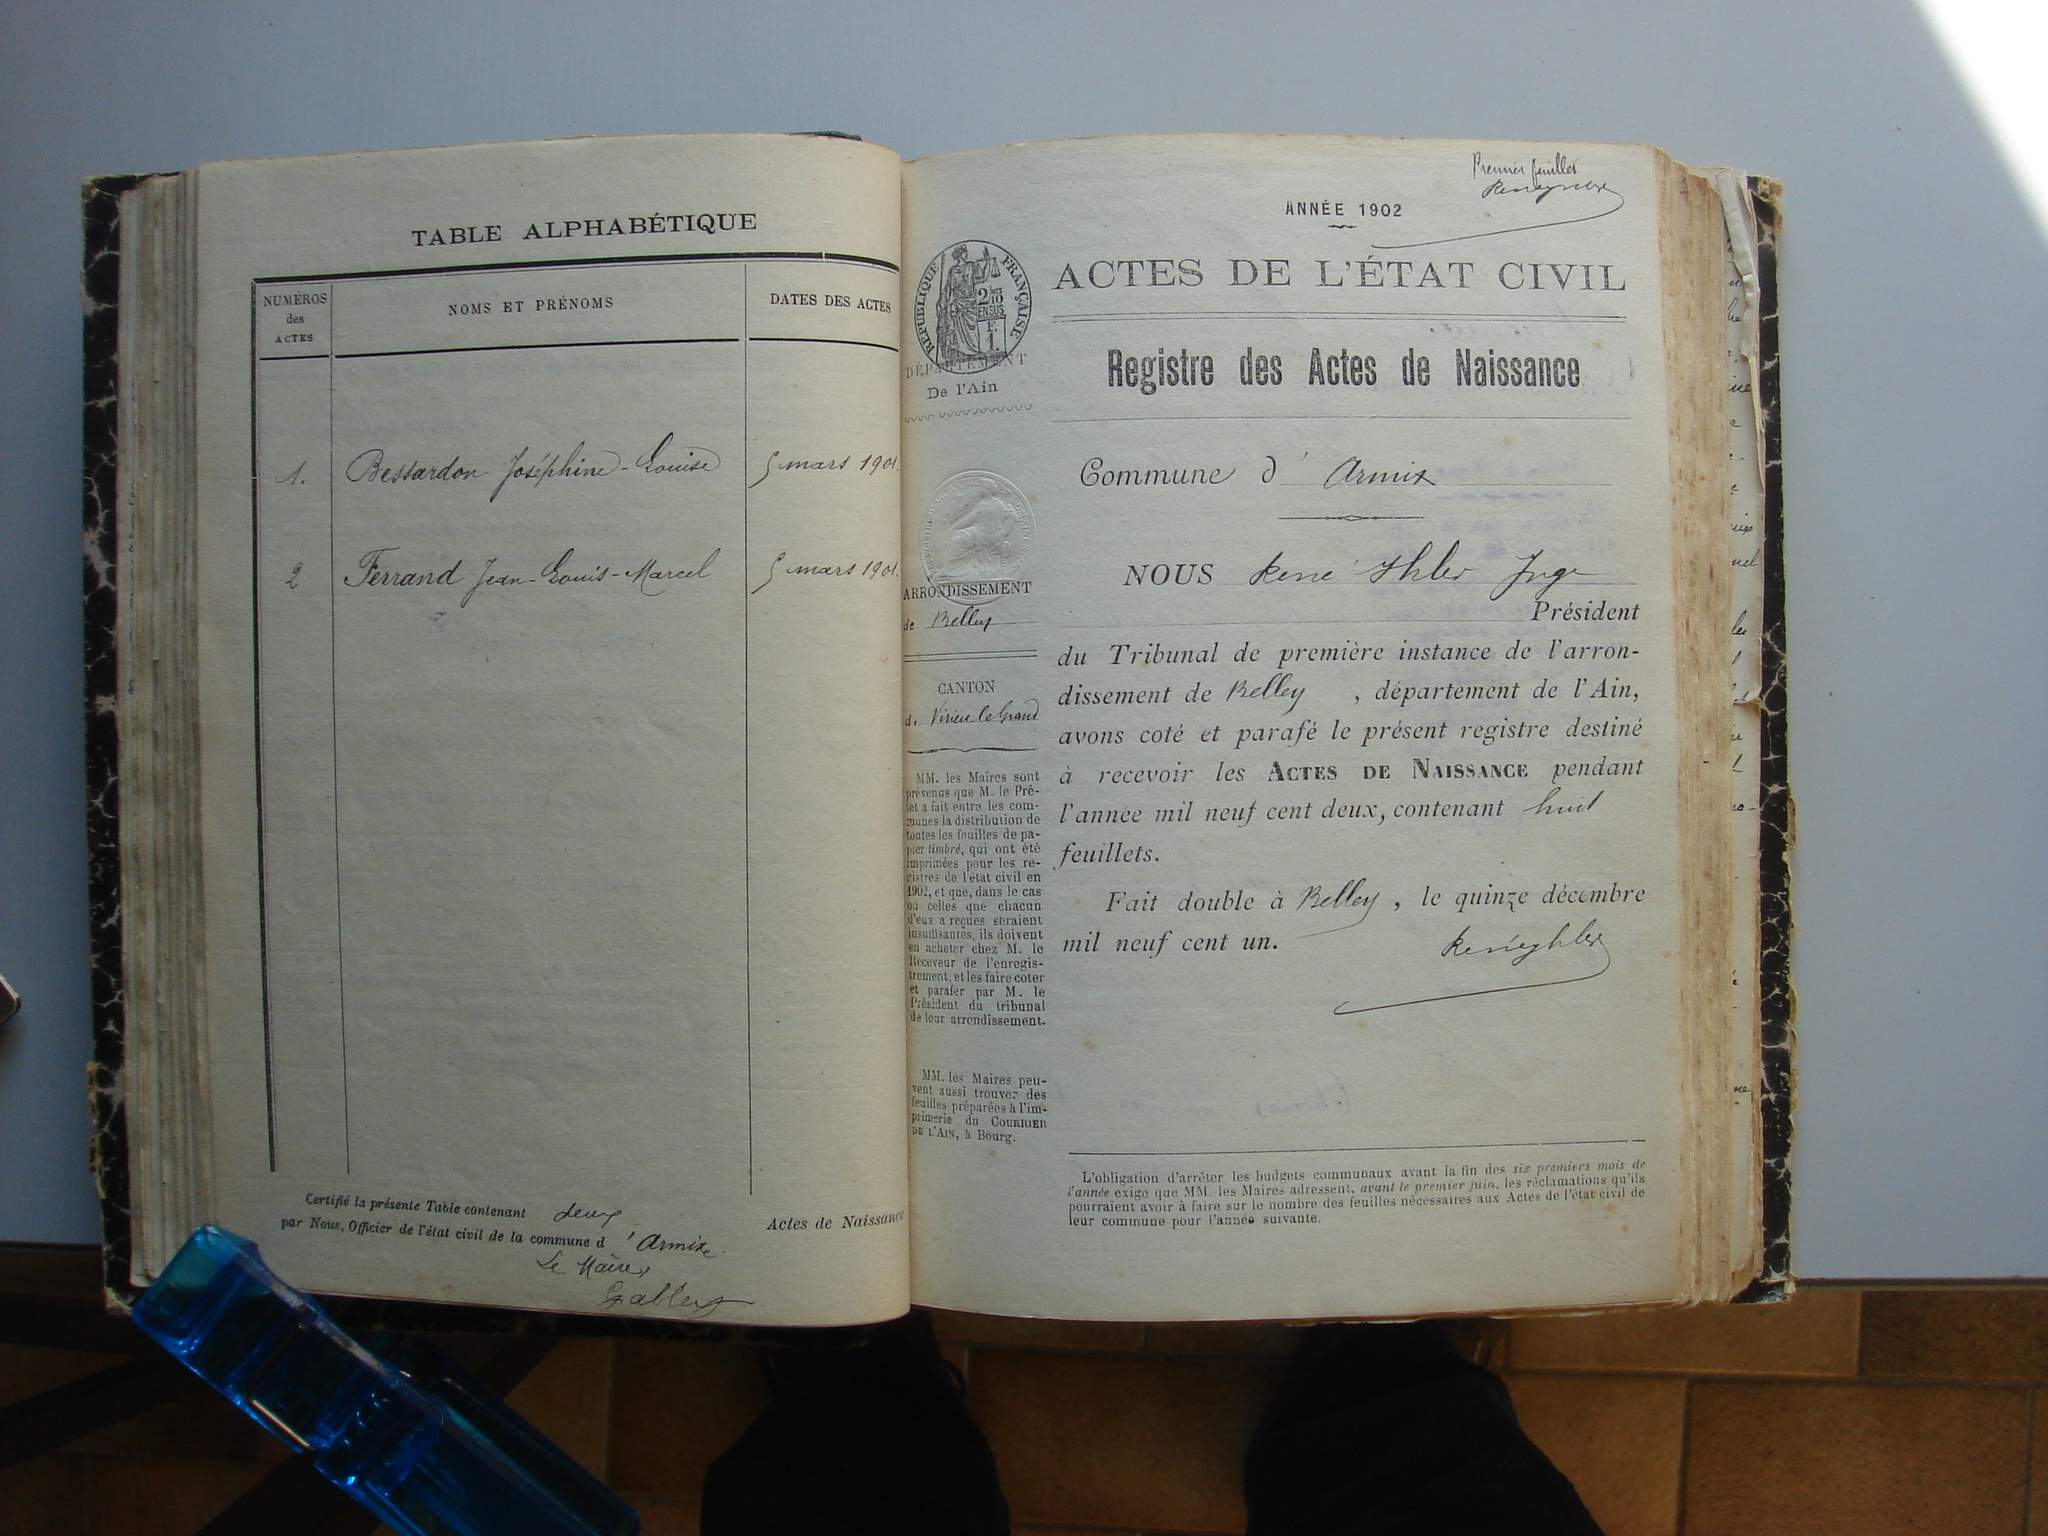 TABLE ALPHABÉTIQUE
NUMÉROS des ACTES
NOMS ET PRÉNOMS
DATES DES ACTES
1. Bessardon Joséphine-Louise 5 mars 1901.
2 Ferrand Jean-Louis-Marcel 5 mars 1901.
Certifié la présente Table contenant deux Actes de Naissance
par Nous, Officier de l'état civil de la commune d'Armix.
Le Maire,
Premier feuillet
ANNÉE 1902
ACTES DE L'ÉTAT CIVIL
RÉPUBLIQUE FRANÇAISE
2/10 EN SUS
F. 1.
DÉPARTEMENT
De l'Ain
Registre des Actes de Naissance
Commune d'Armix
ARRONDISSEMENT
de Belley
CANTON
d. Virieu le Grand
MM. les Maires sont
prévenus que M. le Pré-
fet a fait entre les com-
munes la distribution de
toutes les feuilles de pa-
pier timbré, qui ont été
imprimées pour les re-
gistres de l'état civil en
1902, et que, dans le cas
où celles que chacun
d'eux a reçues seraient
insuffisantes, ils doivent
en acheter chez M. le
Receveur de l'enregis-
trement, et les faire coter
et parafer par M. le
Président du tribunal
de leur arrondissement.
MM. les Maires peu-
vent aussi trouver des
feuilles préparées à l'im-
primerie du COURRIER
DE L'AIN, à Bourg.
NOUS René Ihler Juge
Président
du Tribunal de première instance de l'arron-
dissement de Belley, département de l'Ain,
avons coté et parafé le présent registre destiné
à recevoir les ACTES DE NAISSANCE pendant
l'année mil neuf cent deux, contenant huit
feuillets.
Fait double à Belley, le quinze décembre
mil neuf cent un.
René Ihler
L'obligation d'arrêter les budgets communaux avant la fin des six premiers mois de
l'année exige que MM. les Maires adressent, avant le premier juin, les réclamations qu'ils
pourraient avoir à faire sur le nombre des feuilles nécessaires aux Actes de l'état civil de
leur commune pour l'année suivante.